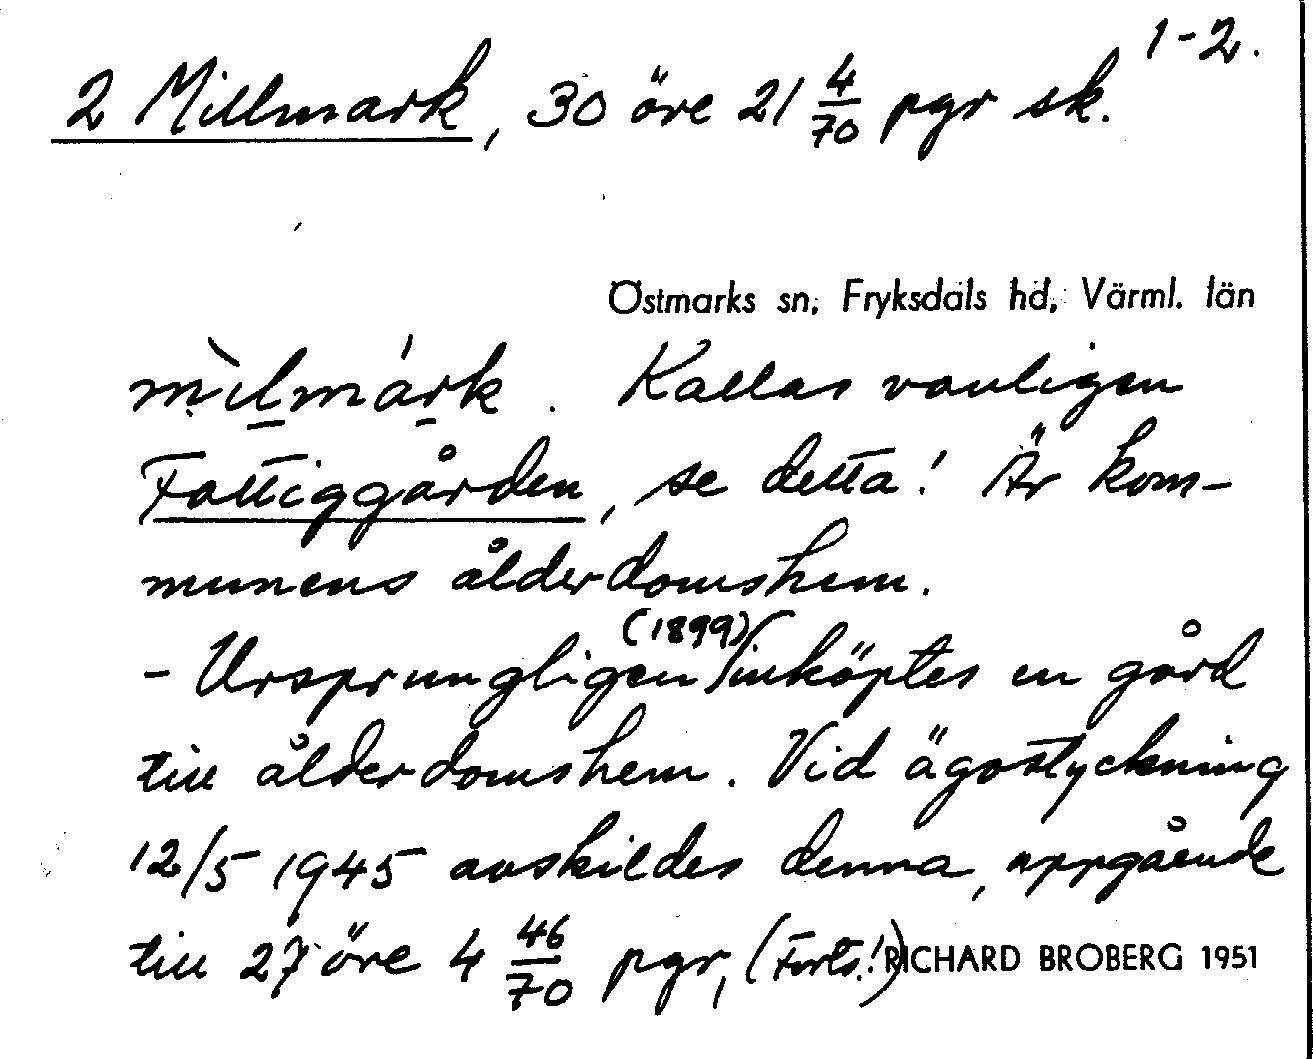 1-2.
2 Millmark, 30 öre 21 4/70 pgr sk.
Östmarks sn, Fryksdals hd, Värml. län
mìlmárk. Kallas vanligen
Fattiggården, se detta! Är kom-
munens ålderdomshem.
- Ursprungligen (1899) inköptes en gård
till ålderdomshem. Vid ägostyckning
12/5 1945 avskildes denna, uppgående
till 27 öre 4 46/70 pgr, (Forts.!)
RICHARD BROBERG 1951